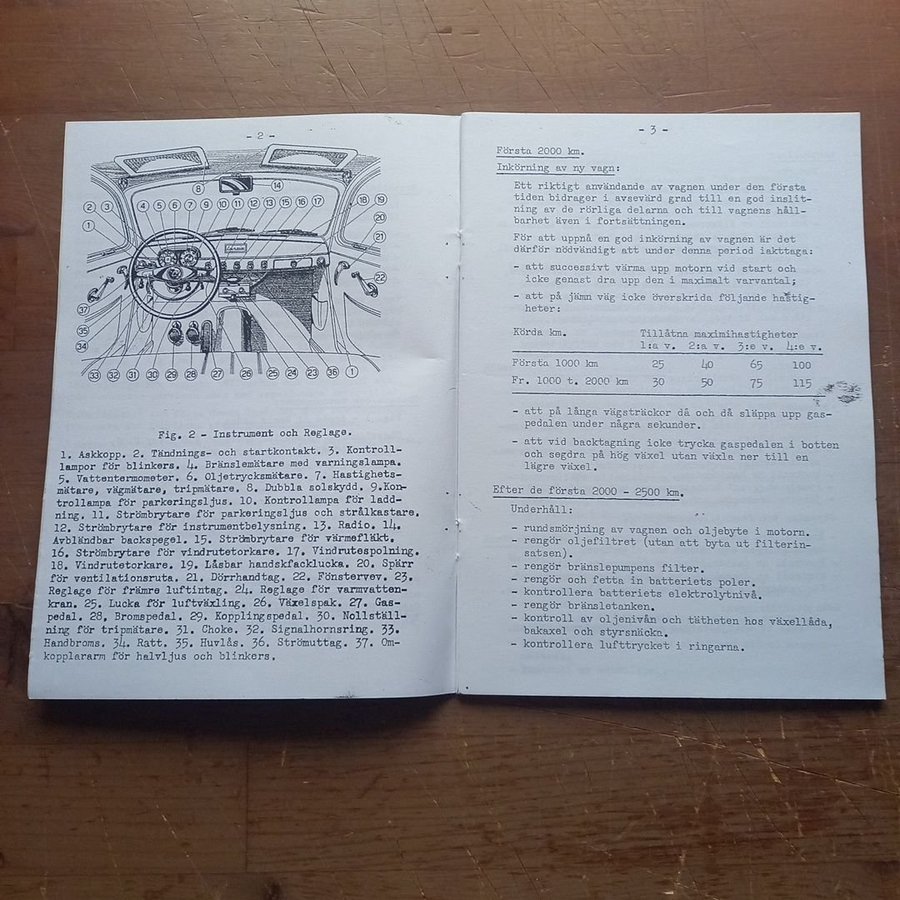 - 2 -
8 14
2 3 4 5 6 7 9 10 11 12 13 15 16 17 18 19
1 20
21
22
37
35
34
33 32 31 30 29 28 27 26 25 24 23 36 1
Fig. 2 - Instrument och Reglage.
1. Askkopp. 2. Tändnings- och startkontakt. 3. Kontroll-
lampor för blinkers. 4. Bränslemätare med varningslampa.
5. Vattentermometer. 6. Oljetrycksmätare. 7. Hastighets-
mätare, vägmätare, tripmätare. 8. Dubbla solskydd. 9.Kon-
trollampa för parkeringsljus. 10. Kontrollampa för ladd-
ning. 11. Strömbrytare för parkeringsljus och strålkastare.
12. Strömbrytare för instrumentbelysning. 13. Radio. 14.
Avbländbar backspegel. 15. Strömbrytare för värmefläkt.
16. Strömbrytare för vindrutetorkare. 17. Vindrutespolning.
18. Vindrutetorkare. 19. Låsbar handskfacklucka. 20. Spärr
för ventilationsruta. 21. Dörrhandtag. 22. Fönstervev. 23.
Reglage för främre luftintag. 24. Reglage för varmvatten-
kran. 25. Lucka för luftväxling. 26. Växelspak. 27. Gas-
pedal. 28, Bromspedal. 29. Kopplingspedal. 30. Nollställ-
ning för tripmätare. 31. Choke. 32. Signalhornsring. 33.
Handbroms. 34. Ratt. 35. Huvlås. 36. Strömuttag. 37. Om-
kopplararm för halvljus och blinkers.
- 3 -
Första 2000 km.
Inkörning av ny vagn:
Ett riktigt användande av vagnen under den första
tiden bidrager i avsevärd grad till en god inslit-
ning av de rörliga delarna och till vagnens håll-
barhet även i fortsättningen.
För att uppnå en god inkörning av vagnen är det
därför nödvändigt att under denna period iakttaga:
- att successivt värma upp motorn vid start och
icke genast dra upp den i maximalt varvantal;
- att på jämn väg icke överskrida följande hastig-
heter:
Körda km. Tillåtna maximihastigheter
1:a v. 2:a v. 3:e v. 4:e v.
Första 1000 km 25 40 65 100
Fr. 1000 t. 2000 km 30 50 75 115
- att på långa vägsträckor då och då släppa upp gas-
pedalen under några sekunder.
- att vid backtagning icke trycka gaspedalen i botten
och segdra på hög växel utan växla ner till en
lägre växel.
Efter de första 2000 - 2500 km.
Underhåll:
- rundsmörjning av vagnen och oljebyte i motorn.
- rengör oljefiltret (utan att byta ut filterin-
satsen).
- rengör bränslepumpens filter.
- rengör och fetta in batteriets poler.
- kontrollera batteriets elektrolytnivå.
- rengör bränsletanken.
- kontroll av oljenivån och tätheten hos växellåda,
bakaxel och styrsnäcka.
- kontrollera lufttrycket i ringarna.